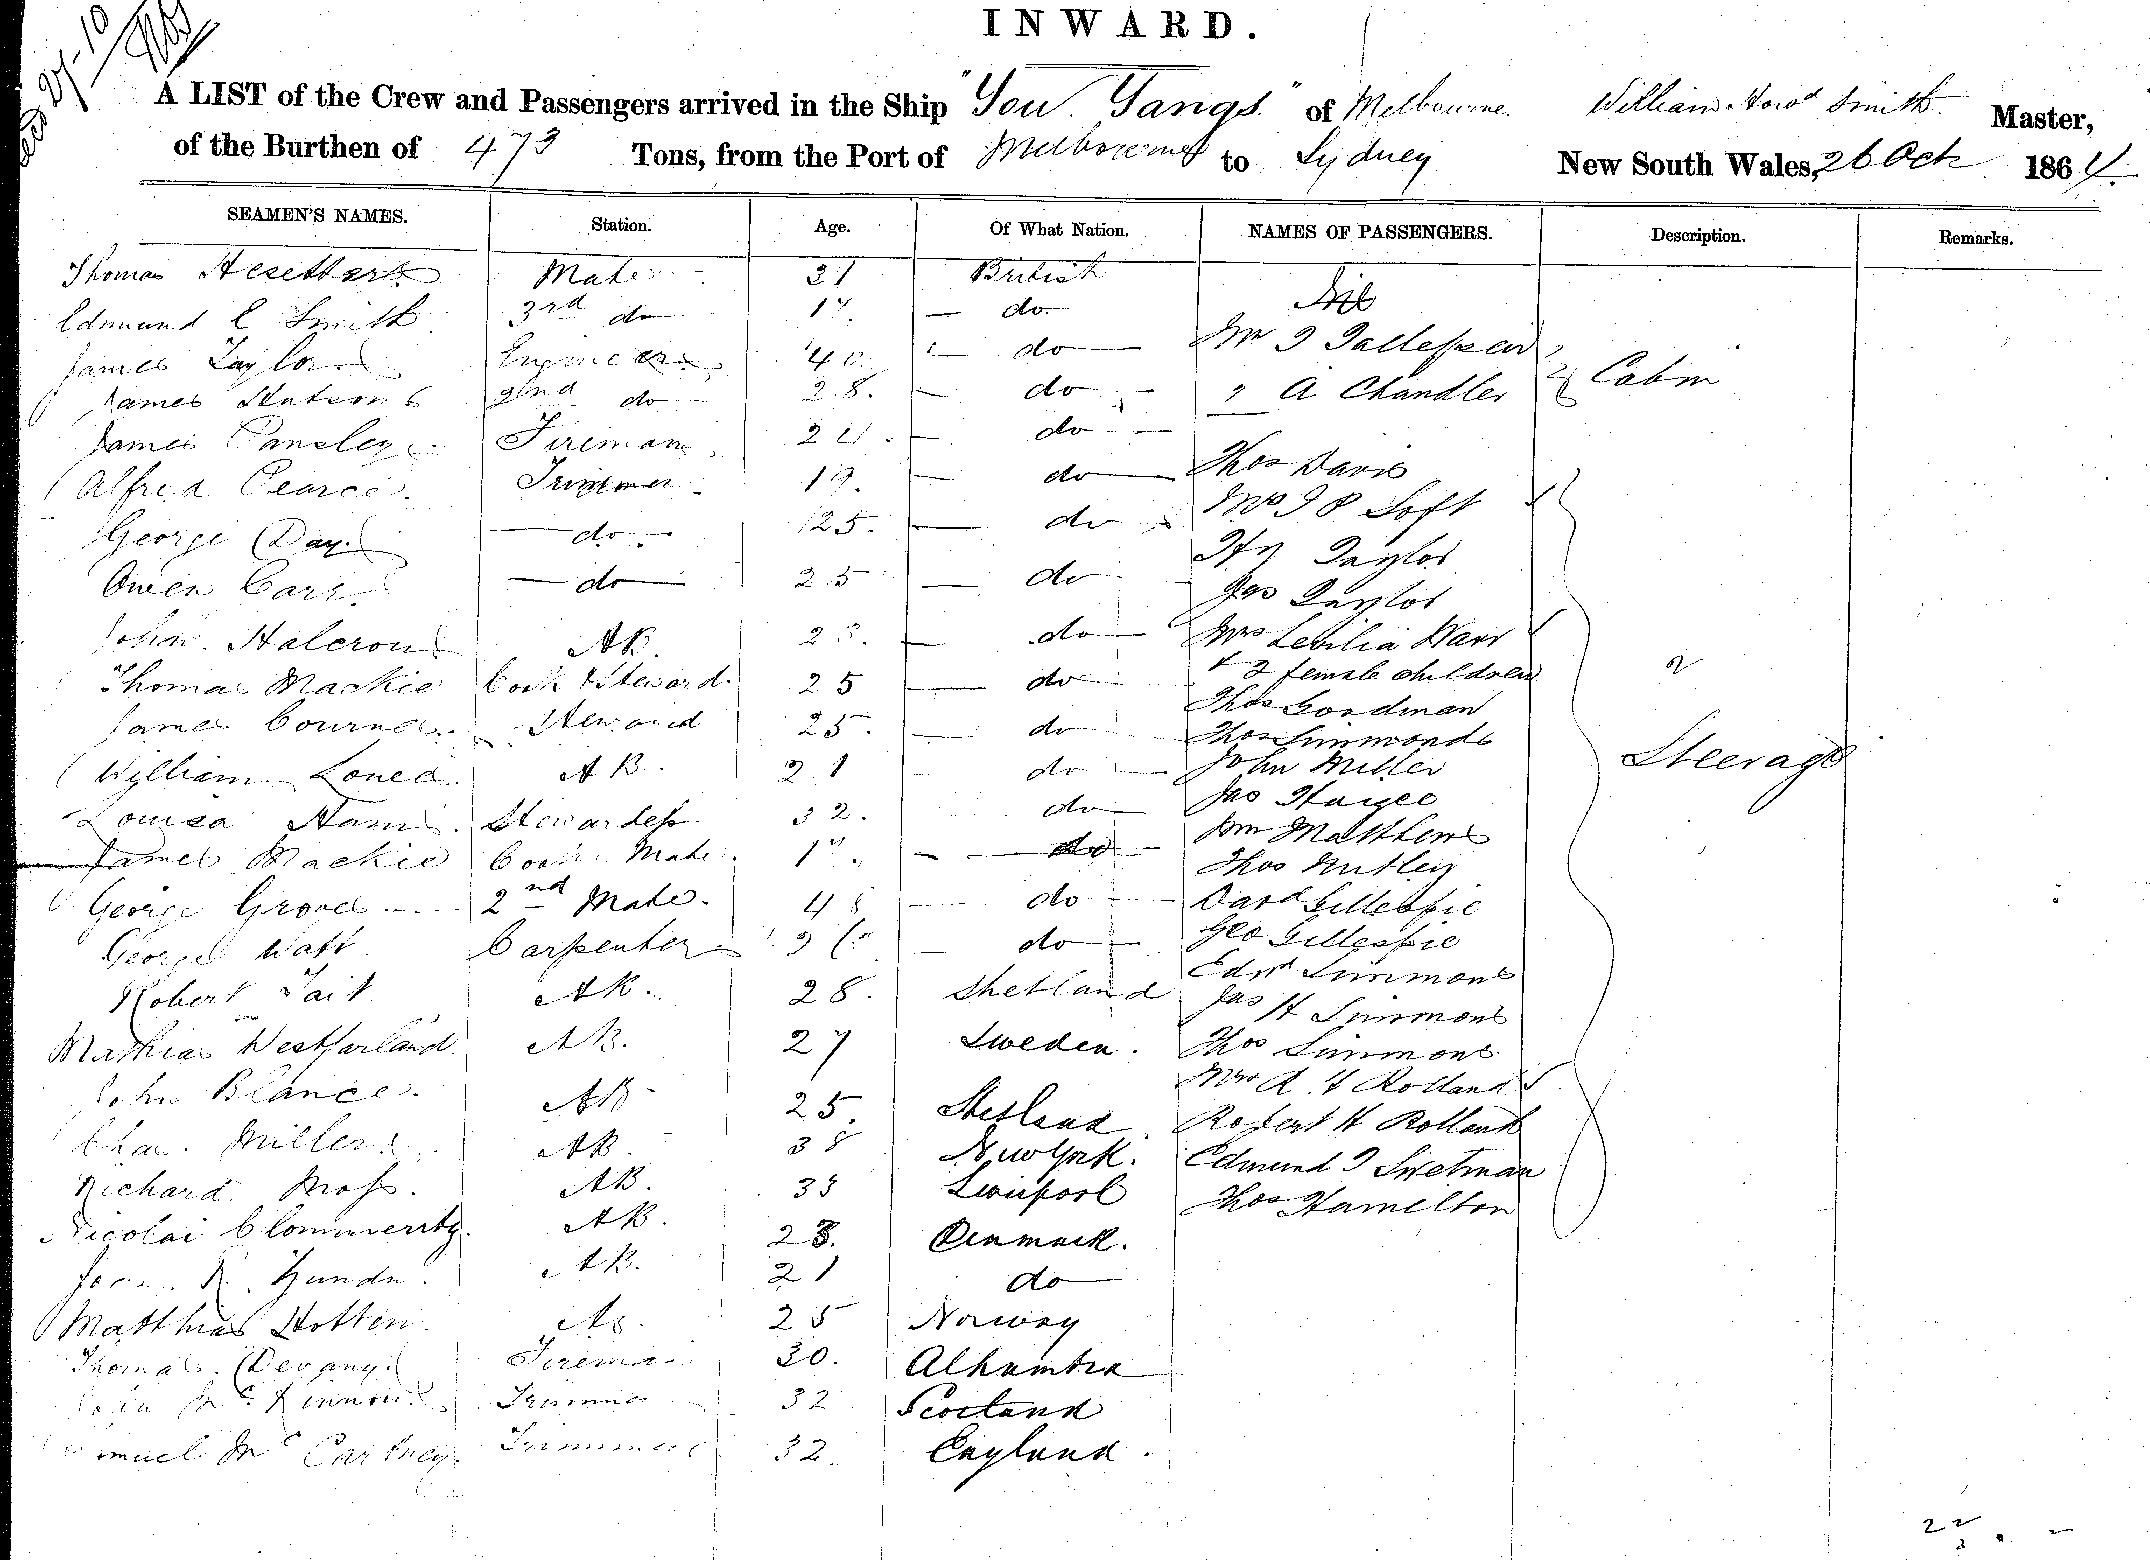 INWARD.
A LIST of the Crew and Passengers arrived in the Ship "You Yangs" of Melbourne William Howd Smith Master,
of the Burthen of 473 Tons, from the Port of Melbourne to Sydney New South Wales, 26 Oct 1864.
SEAMEN'S NAMES. Station. Age. Of What Nation. NAMES OF PASSENGERS. Description. Remarks.
Thomas Mate 31 British Nil
Edmund C Smith 3rd do 17 — do
James Taylor Engineer 40 — do — Mr
James 2nd do 28. — do — " A Chandler Cabin
James Pansley Fireman 24. — do —
Alfred Pearce Trimmer 19. — do — Thos Davis
George Day — do — 25. — do Mrs Loft
Owen Carr — do — 25 — do Hy Taylor
Jas Taylor
John Halcrow AB. 23. — do — Mrs Warr
Thomas Mackie Cook & Steward. 25 — do & 2 female children 2
James Steward 25. — do Thos Goodman
Thos Simmonds Steerage
William AB. 21 do — John Miller
Louisa Stewardess 32. do — Jas
James Mackie Cooks Mate. 17. — do — Wm Matthews
Thos Nutley
George Groves 2nd Mate. 48 — do — Davd Gillespie
George Watt Carpenter — do — Geo Gillespie
Robert Tait AB. 28. Shetland Edwd Simmons
Jas H Simmons
Mathias Westfarland AB. 27 Sweden. Thos Simmons
John Blance. AB 25. Shetland Mrs R H Rolland
Robert H Rolland
Chas. Miller AB 38 New York. Edmund
Richard Moss. AB. 35 Liverpool Thos Hamelton
Nicolai AB. 28. Denmark.
AB. 21 do —
Matthias Hotten. AB. 25 Norway
Thomas Devany Fireman 30. Alhambra
McKinnon Trimmer 32 Scotland
McCartney Trimmer 32. England.
22